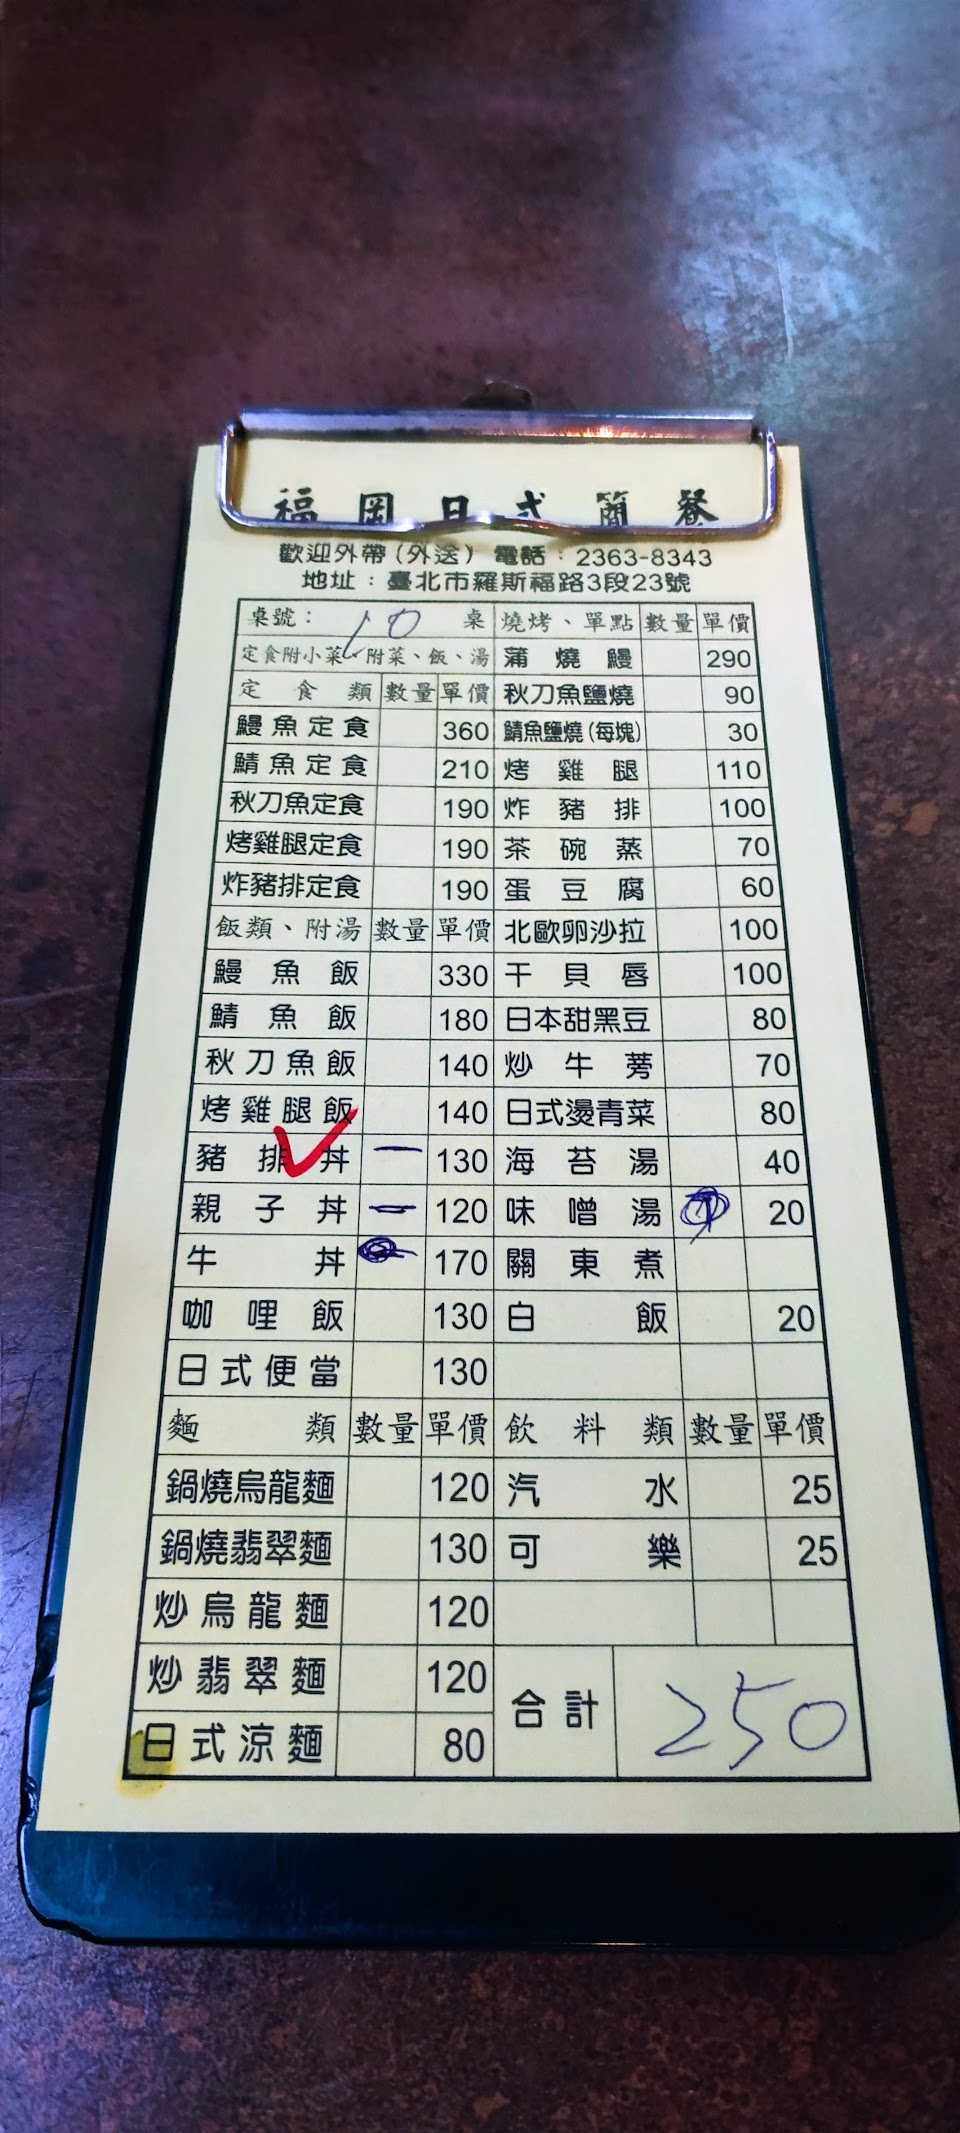 福岡日式簡餐
歡迎外帶(外送) 電話:2363-8343
地址:臺北市羅斯福路3段23號
桌號: 10 桌 燒烤、單點 數量 單價
定食附小菜、附菜、飯、湯 蒲燒鰻 290
定食類 數量 單價 秋刀魚鹽燒 90
鰻魚定食 360 鯖魚鹽燒(每塊) 30
鯖魚定食 210 烤雞腿 110
秋刀魚定食 190 炸豬排 100
烤雞腿定食 190 茶碗蒸 70
炸豬排定食 190 蛋豆腐 60
飯類、附湯 數量 單價 北歐卵沙拉 100
鰻魚飯 330 干貝唇 100
鯖魚飯 180 日本甜黑豆 80
秋刀魚飯 140 炒牛蒡 70
烤雞腿飯 140 日式燙青菜 80
豬排丼 一 130 海苔湯 40
親子丼 一 120 味噌湯 20
牛丼 170 關東煮
咖哩飯 130 白飯 20
日式便當 130
麵類 數量 單價 飲料類 數量 單價
鍋燒烏龍麵 120 汽水 25
鍋燒翡翠麵 130 可樂 25
炒烏龍麵 120
炒翡翠麵 120 合計 250
日式涼麵 80